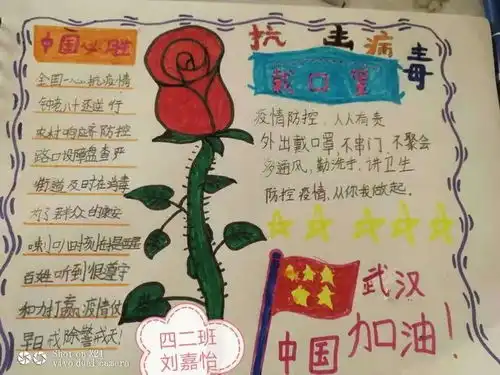 中国必胜
全国一心抗疫情
钟老八十还逆行
农村响应齐防控
路口设障盘查严
街道及时在消毒
为了群众的康安
喇叭时刻在提醒
百姓听到很遵守
和力打赢疫情仗
早日戎除警戒犬!
抗击病毒
戴口罩
疫情防控,人人有责
外出戴口罩,不串门,不聚会
多通风,勤洗手,讲卫生
防控疫情,从你我做起。
武汉
中国加油!
四二班
刘嘉怡
Shot on X21
vivo dual camera